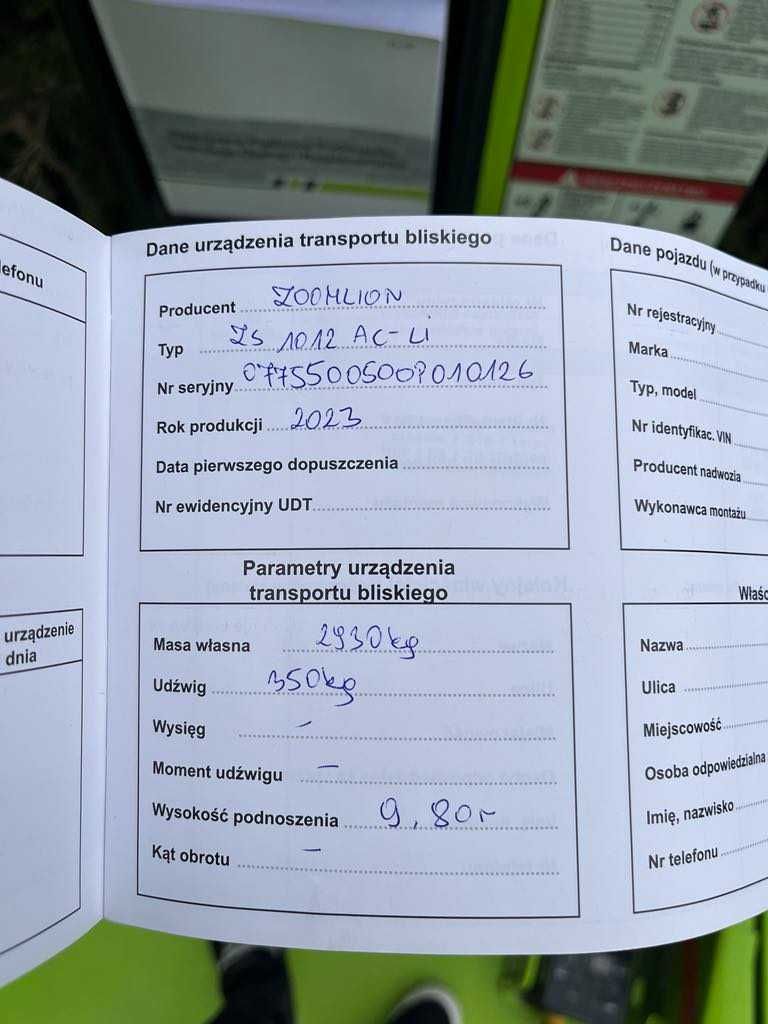 efonu
urządzenie
dnia
Dane urządzenia transportu bliskiego
Producent ZOOMLION
Typ ZS 1012 AC-Li
Nr seryjny
Rok produkcji 2023
Data pierwszego dopuszczenia
Nr ewidencyjny UDT
Parametry urządzenia
transportu bliskiego
Masa własna 2930kg
Udźwig 350kg
Wysięg –
Moment udźwigu –
Wysokość podnoszenia 9,80
Kąt obrotu –
Dane pojazdu (w przypadku
Nr rejestracyjny
Marka
Typ, model
Nr identyfikac. VIN
Producent nadwozia
Wykonawca montażu
Właśc
Nazwa
Ulica
Miejscowość
Osoba odpowiedzialna
Imię, nazwisko
Nr telefonu